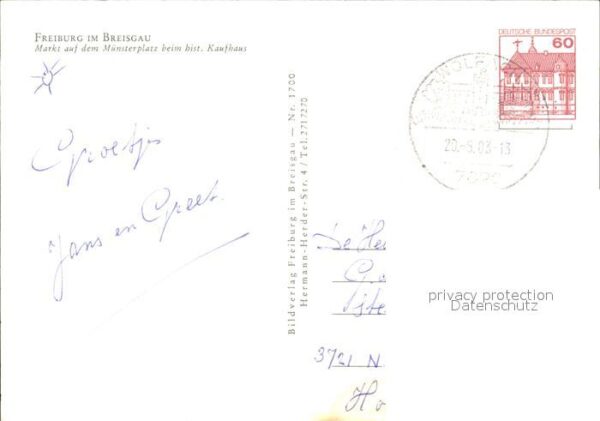 FREIBURG IM BREISGAU
Markt auf dem Münsterplatz beim hist. Kaufhaus
Groetjes
Jans en Greet.
Bildverlag Freiburg im Breisgau — Nr. 1700
Hermann-Herder-Str. 4 / Tel. 2717270
DEUTSCHE BUNDESPOST
60
20.-9.83-13
De He
3721 N
Ho
privacy protection
Datenschutz